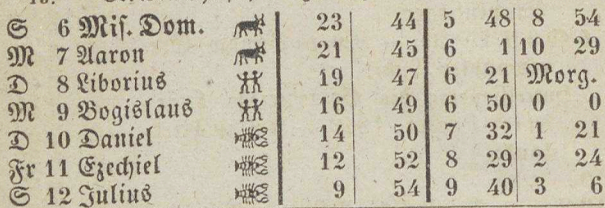 S 6 Miſ. Dom. 23 44 5 48 8 54
M 7 Aaron 21 45 6 1 10 29
D 8 Liborius 19 47 6 21 Morg.
M 9 Bogislaus 16 49 6 50 0 0
D 10 Daniel 14 50 7 32 1 21
Fr 11 Ezechiel 12 52 8 29 2 24
S 12 Julius 9 54 9 40 3 6